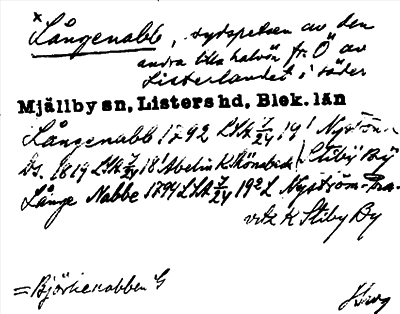 x
Långenabb, sydspetsen av den
andra lilla halvön fr. Ö av
Listerlandet i söder
Mjällby sn, Listers hd, Blek. län
Långenabb 1792 LSA 7/24 19¹ Nyström
Ds. 1819 LSA 7/24 18¹ Abelin K Hönabeck Stiby By
Långe Nabbe 1794 LSA 7/24 19² L Nyström
K Stiby By
= Björkenabben